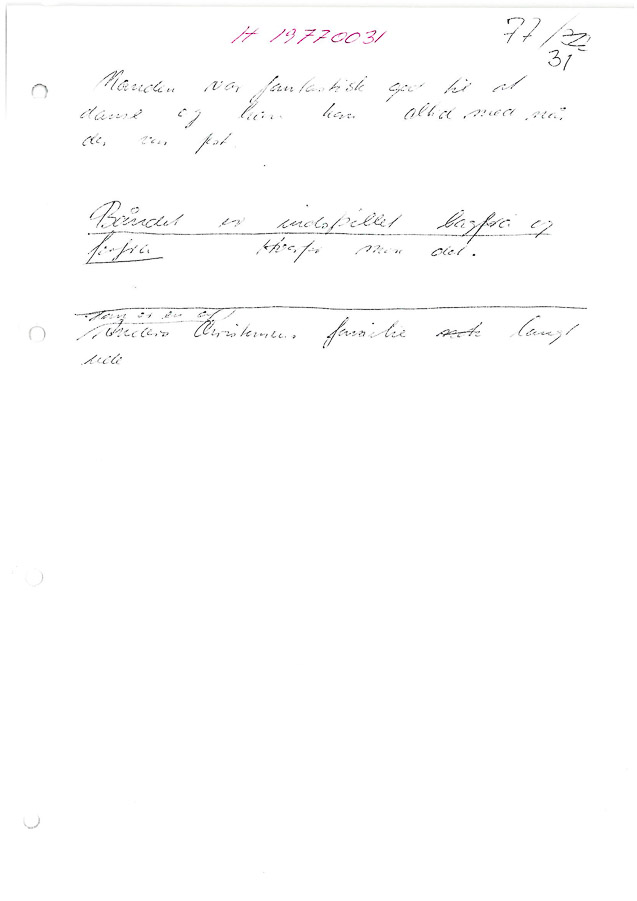 H 19770031
77/22
31
Manden var fantastisk god til at
danse og kom han altid med når
der var fest.
Båndet er indspillet bagfra og
forfra Hvorfor men det.
Tom er en af
Anders Christensens langt
ude